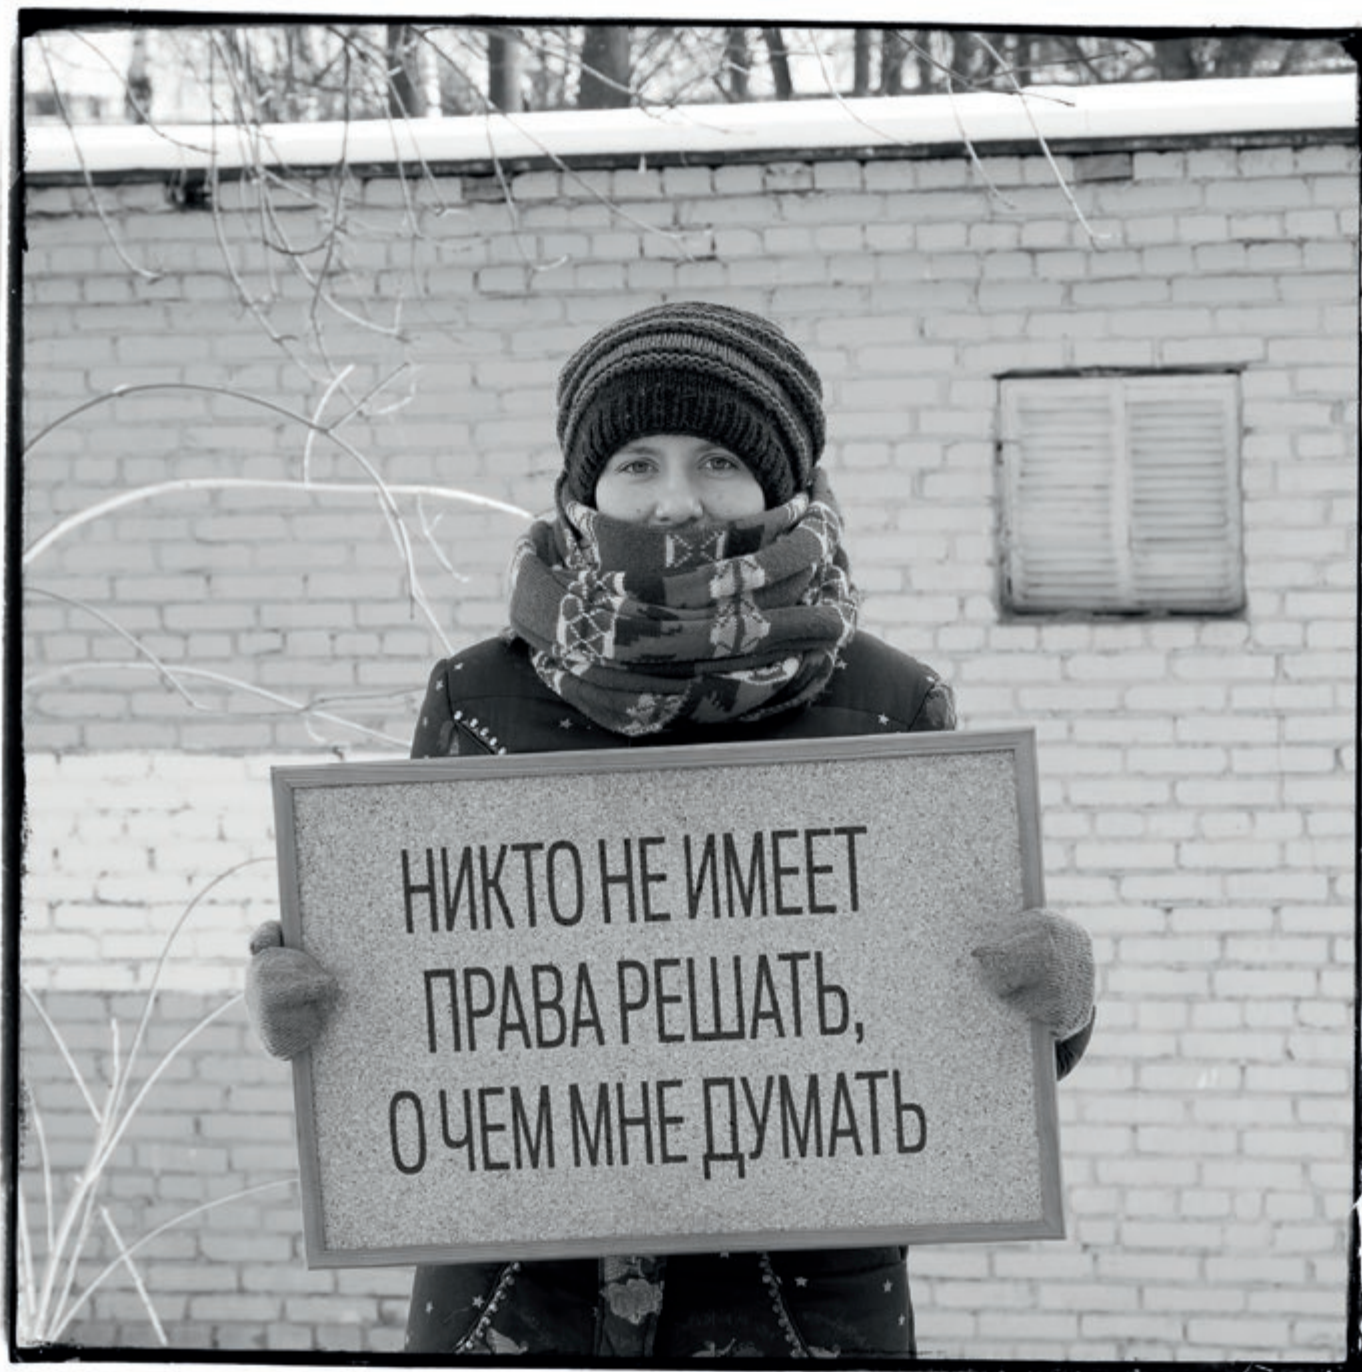 НИКТО НЕ ИМЕЕТ
ПРАВА РЕШАТЬ,
О ЧЕМ МНЕ ДУМАТЬ